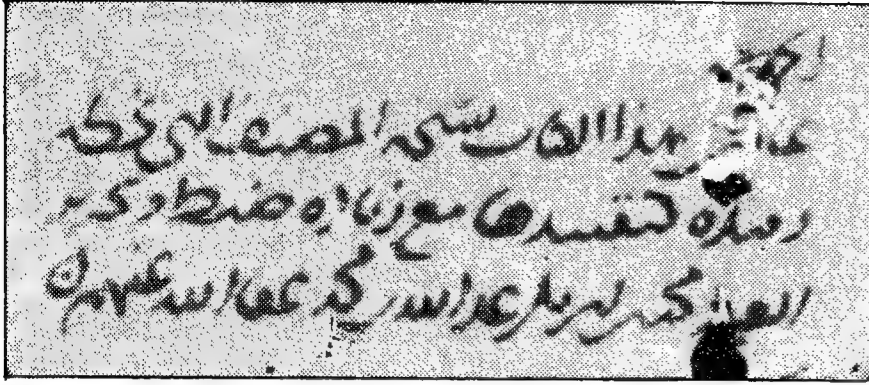 هذا الكتاب بنسخة المصنف التي بخطه
وقيده كتقييدها مع زيادة ضبط وكتبه
محمد بن ابي بكر بن عبد الله بن محمد عفا الله عنهم